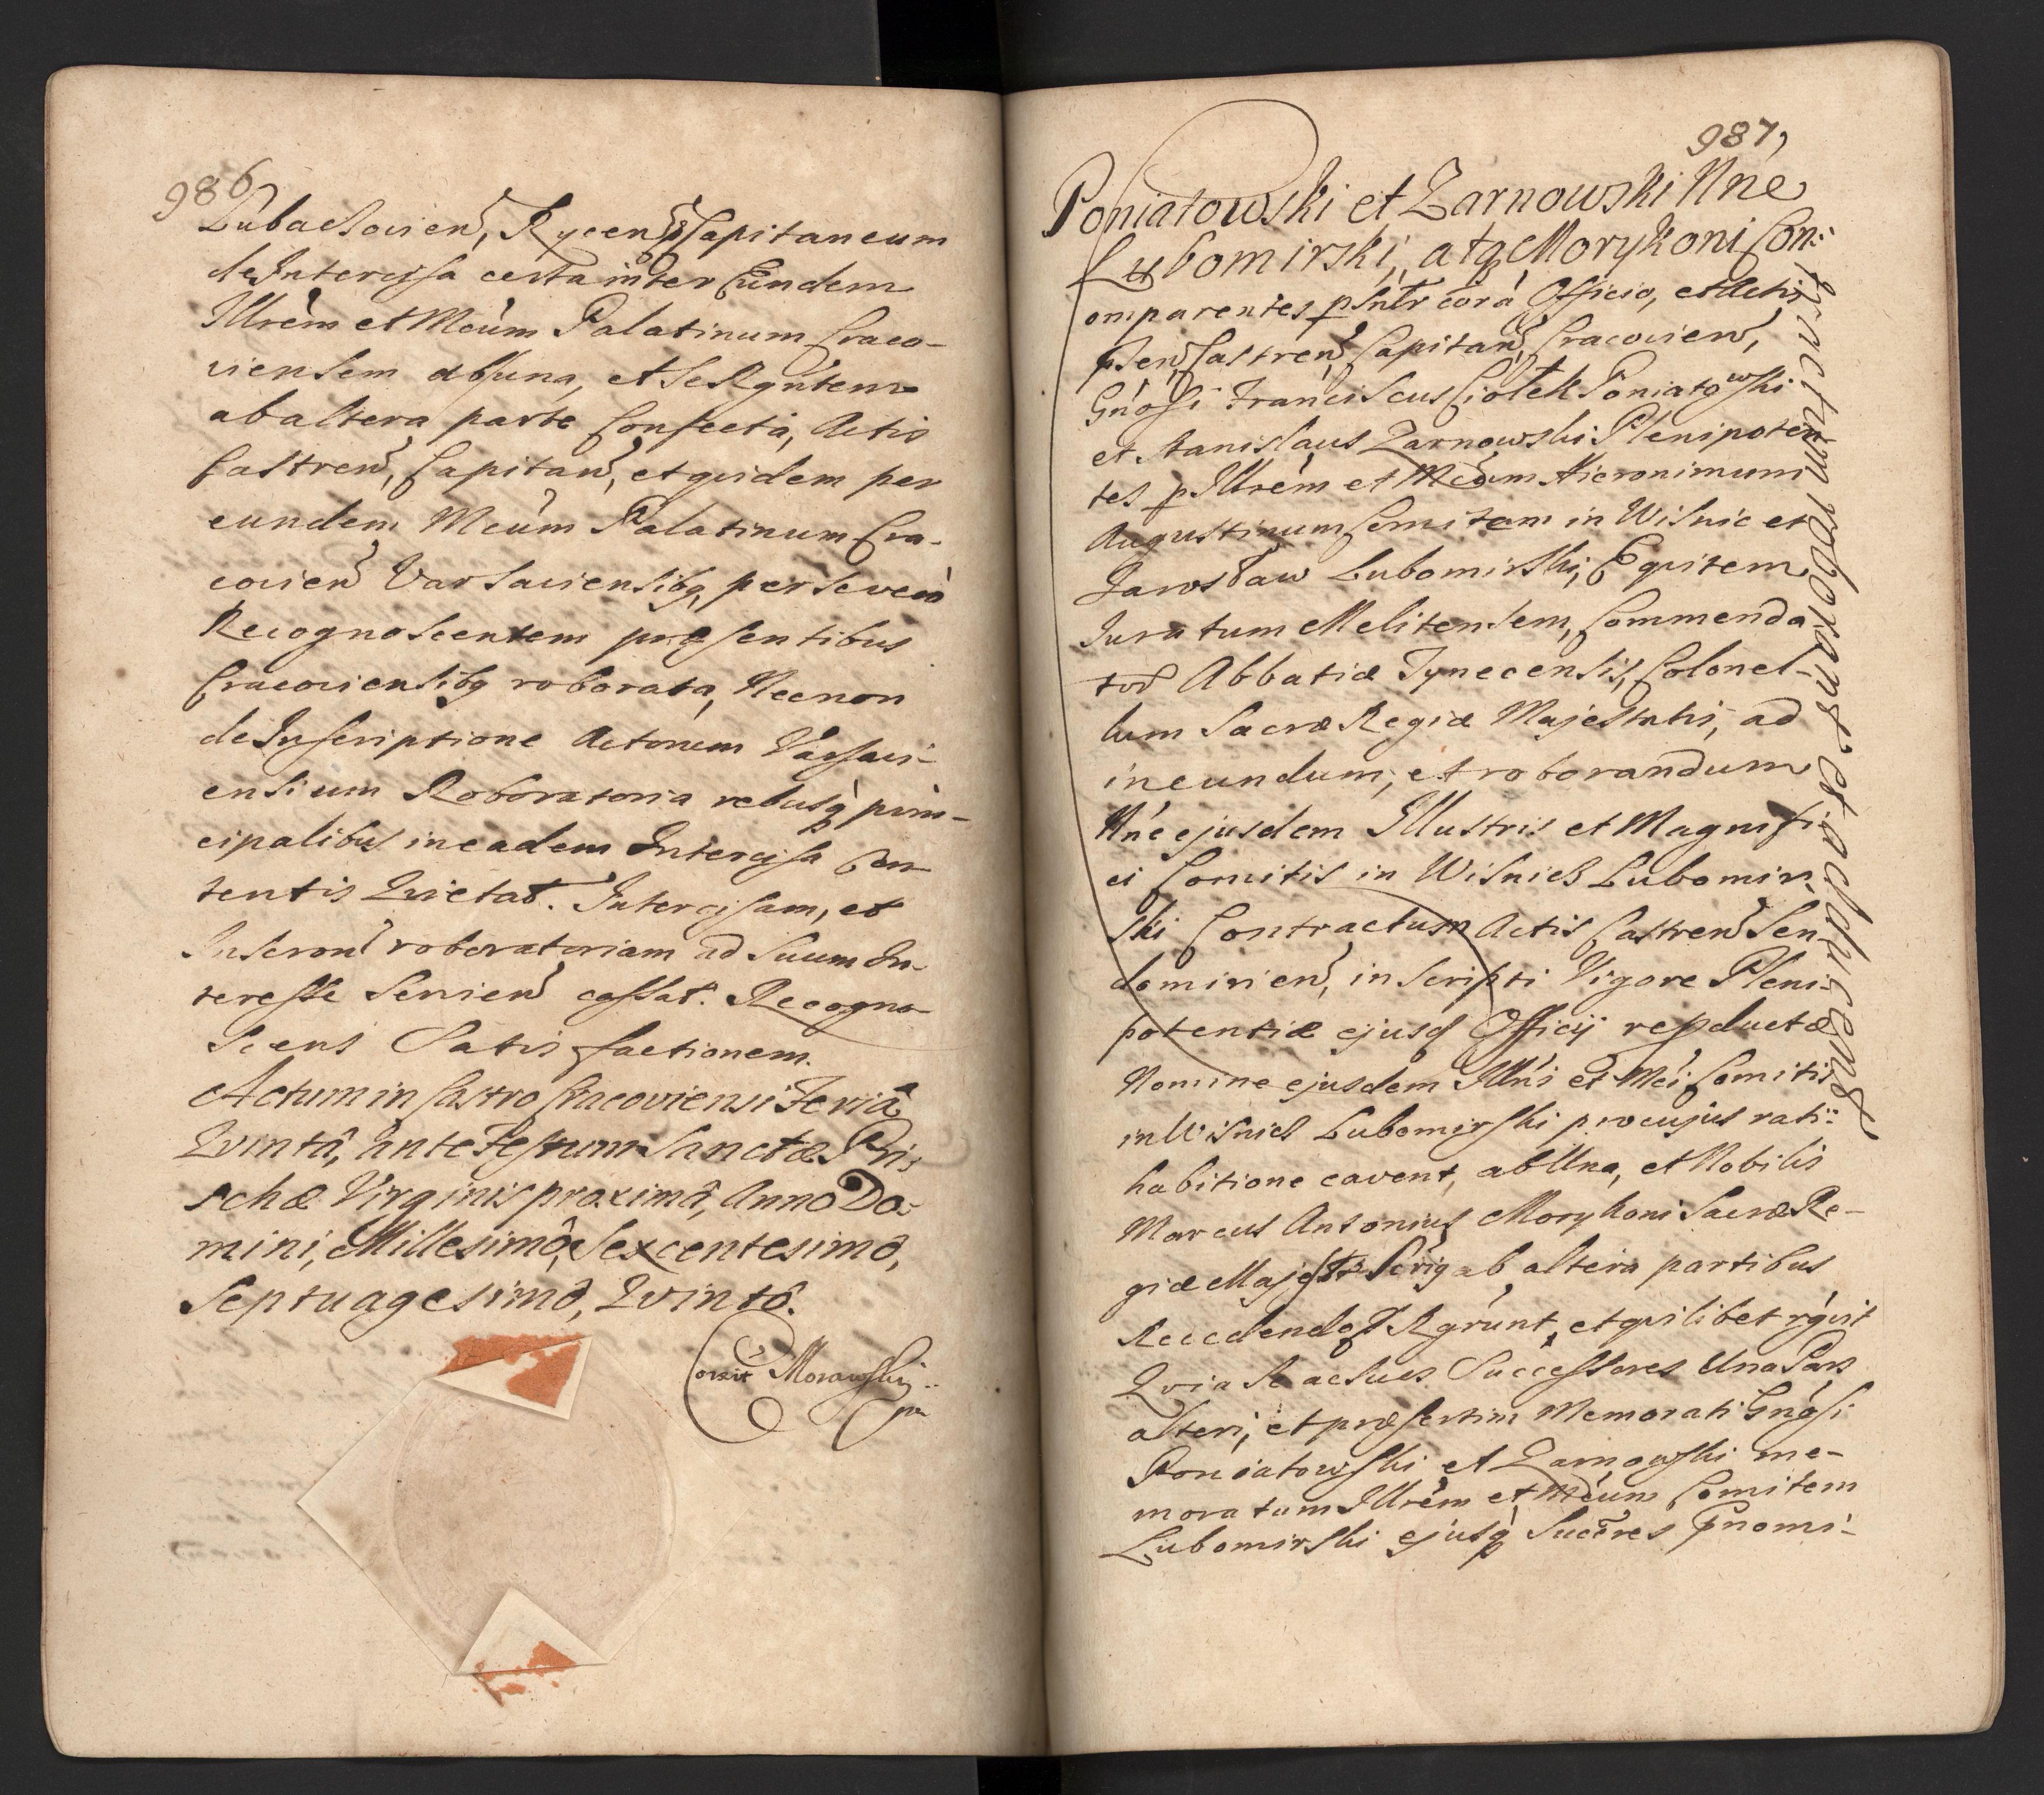 986
Lubaczovien, Rycen, Capitaneum
de Intercisa certa inter Eundem
Illrem et Mcum Palatinum Craco-
viensem ab una, et se Rgntem
ab altera parte Confecta, Actis
Castren, Capitan, et quidem per
eundem Mcum Palatinum Cra-
covien Varsaviensibq, per se vero
Recognoscentem præsentibus
Cracoviensibq roborata, Necnon
de Inscriptione Actorum Varsavi-
ensium Roboratoria rebusq prin-
cipalibus in eadem Intercisa Con
tentis Quietat. Intercisam, et
Inscron roboratoriam ad Suum In-
teresse Servien cassat. Recogno-
scens Satisfactionem.
Actum in Castro Cracoviensi Feriâ
Qvintâ, ante Festum Sanctæ Pri-
schæ Virginis proximâ, Anno Do-
mini, Millesimô, Sexcentesimô,
Septuagesimô, Qvintô.
Corrit Morawski
mp
987
Poniatowski et Zarnowski Nne
Lubomirski, atq Morykoni Con-
tractum roborant et adducunt
omparentes psntr cora Officio, et Actis
psen, Castren, Capitan, Cracovien,
Gnosi Franciscus Ciołek Poniatowski
et Stanislaus Zarnowski Plenipoten
tes p Illrem et Mcum Hieronimum
Augustinum Comitem in Wisnic et
Jarosław Lubomirski, Equitem
Juratum Melitensem, Commenda
tor Abbatiæ Tynecensis, Colonel-
lum Sacræ Regiæ Majestatis, ad
ineundum, et roborandum
Nne ejusdem Illustris et Magnifi-
ci Comitis in Wisnicz Lubomir-
ski Contractum Actis Castren Sen-
domirien, inscripti Vigore Pleni-
potentiæ ejusd Officij repductæ
Nomine ejusdem Illris et Mci Comitis
in Wisnicz Lubomirski pro cujus rati-
habitione cavent, ab Una, et Nobilis
Marcus Antonius Morykoni Sacræ Re-
giæ Majestis ab altera partibus
Recedendo Rgrunt, et quilibet rgvit
Qvia se ac suos Successores Una Pars
alteri, et præsertim Memorati Gnosi
Poniatowski et Zarnowski me-
moratum Illrem et Mcum Comitem
Lubomirski ejusq Succres pnomi-